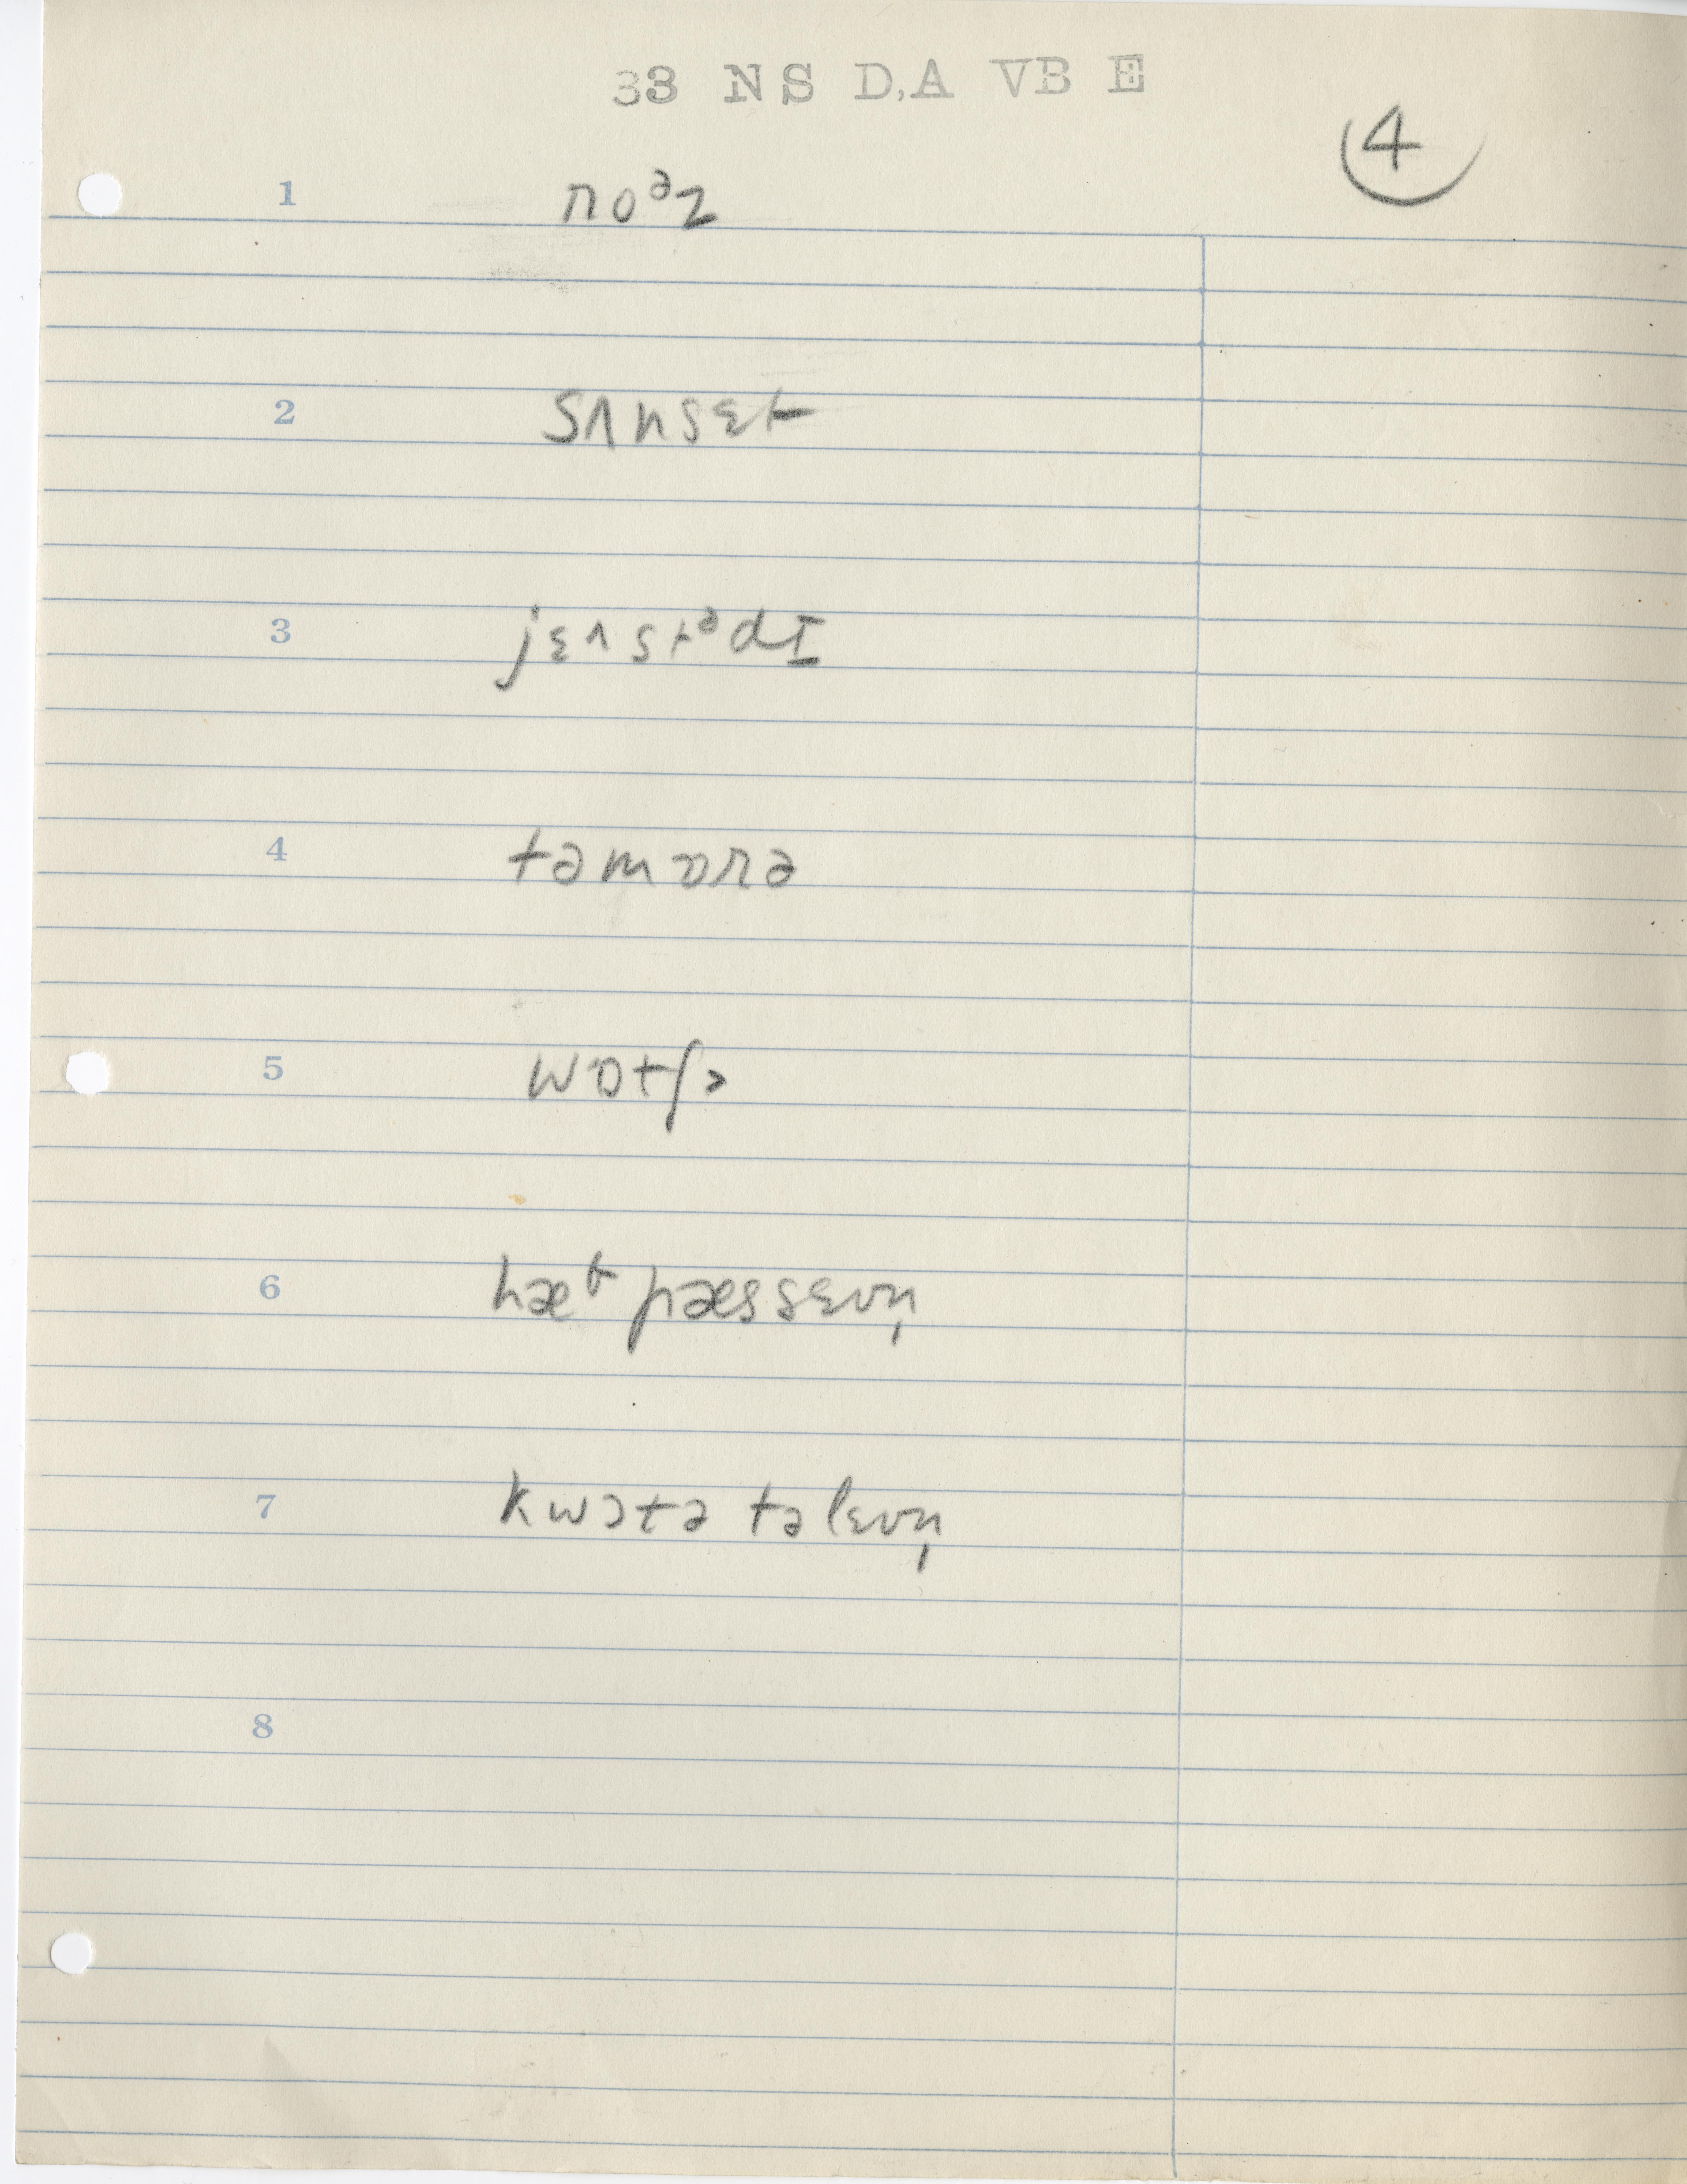 33 NS D,A VB E
4
1 ɹoᵊz
2 sʌnsɛt
3 jɛʌstᵊdɪ
4 təmɒɹə
5 wɒtʃə
6 hæt pæssɛvn̩
7 kwɔtə təlɛvn̩
8